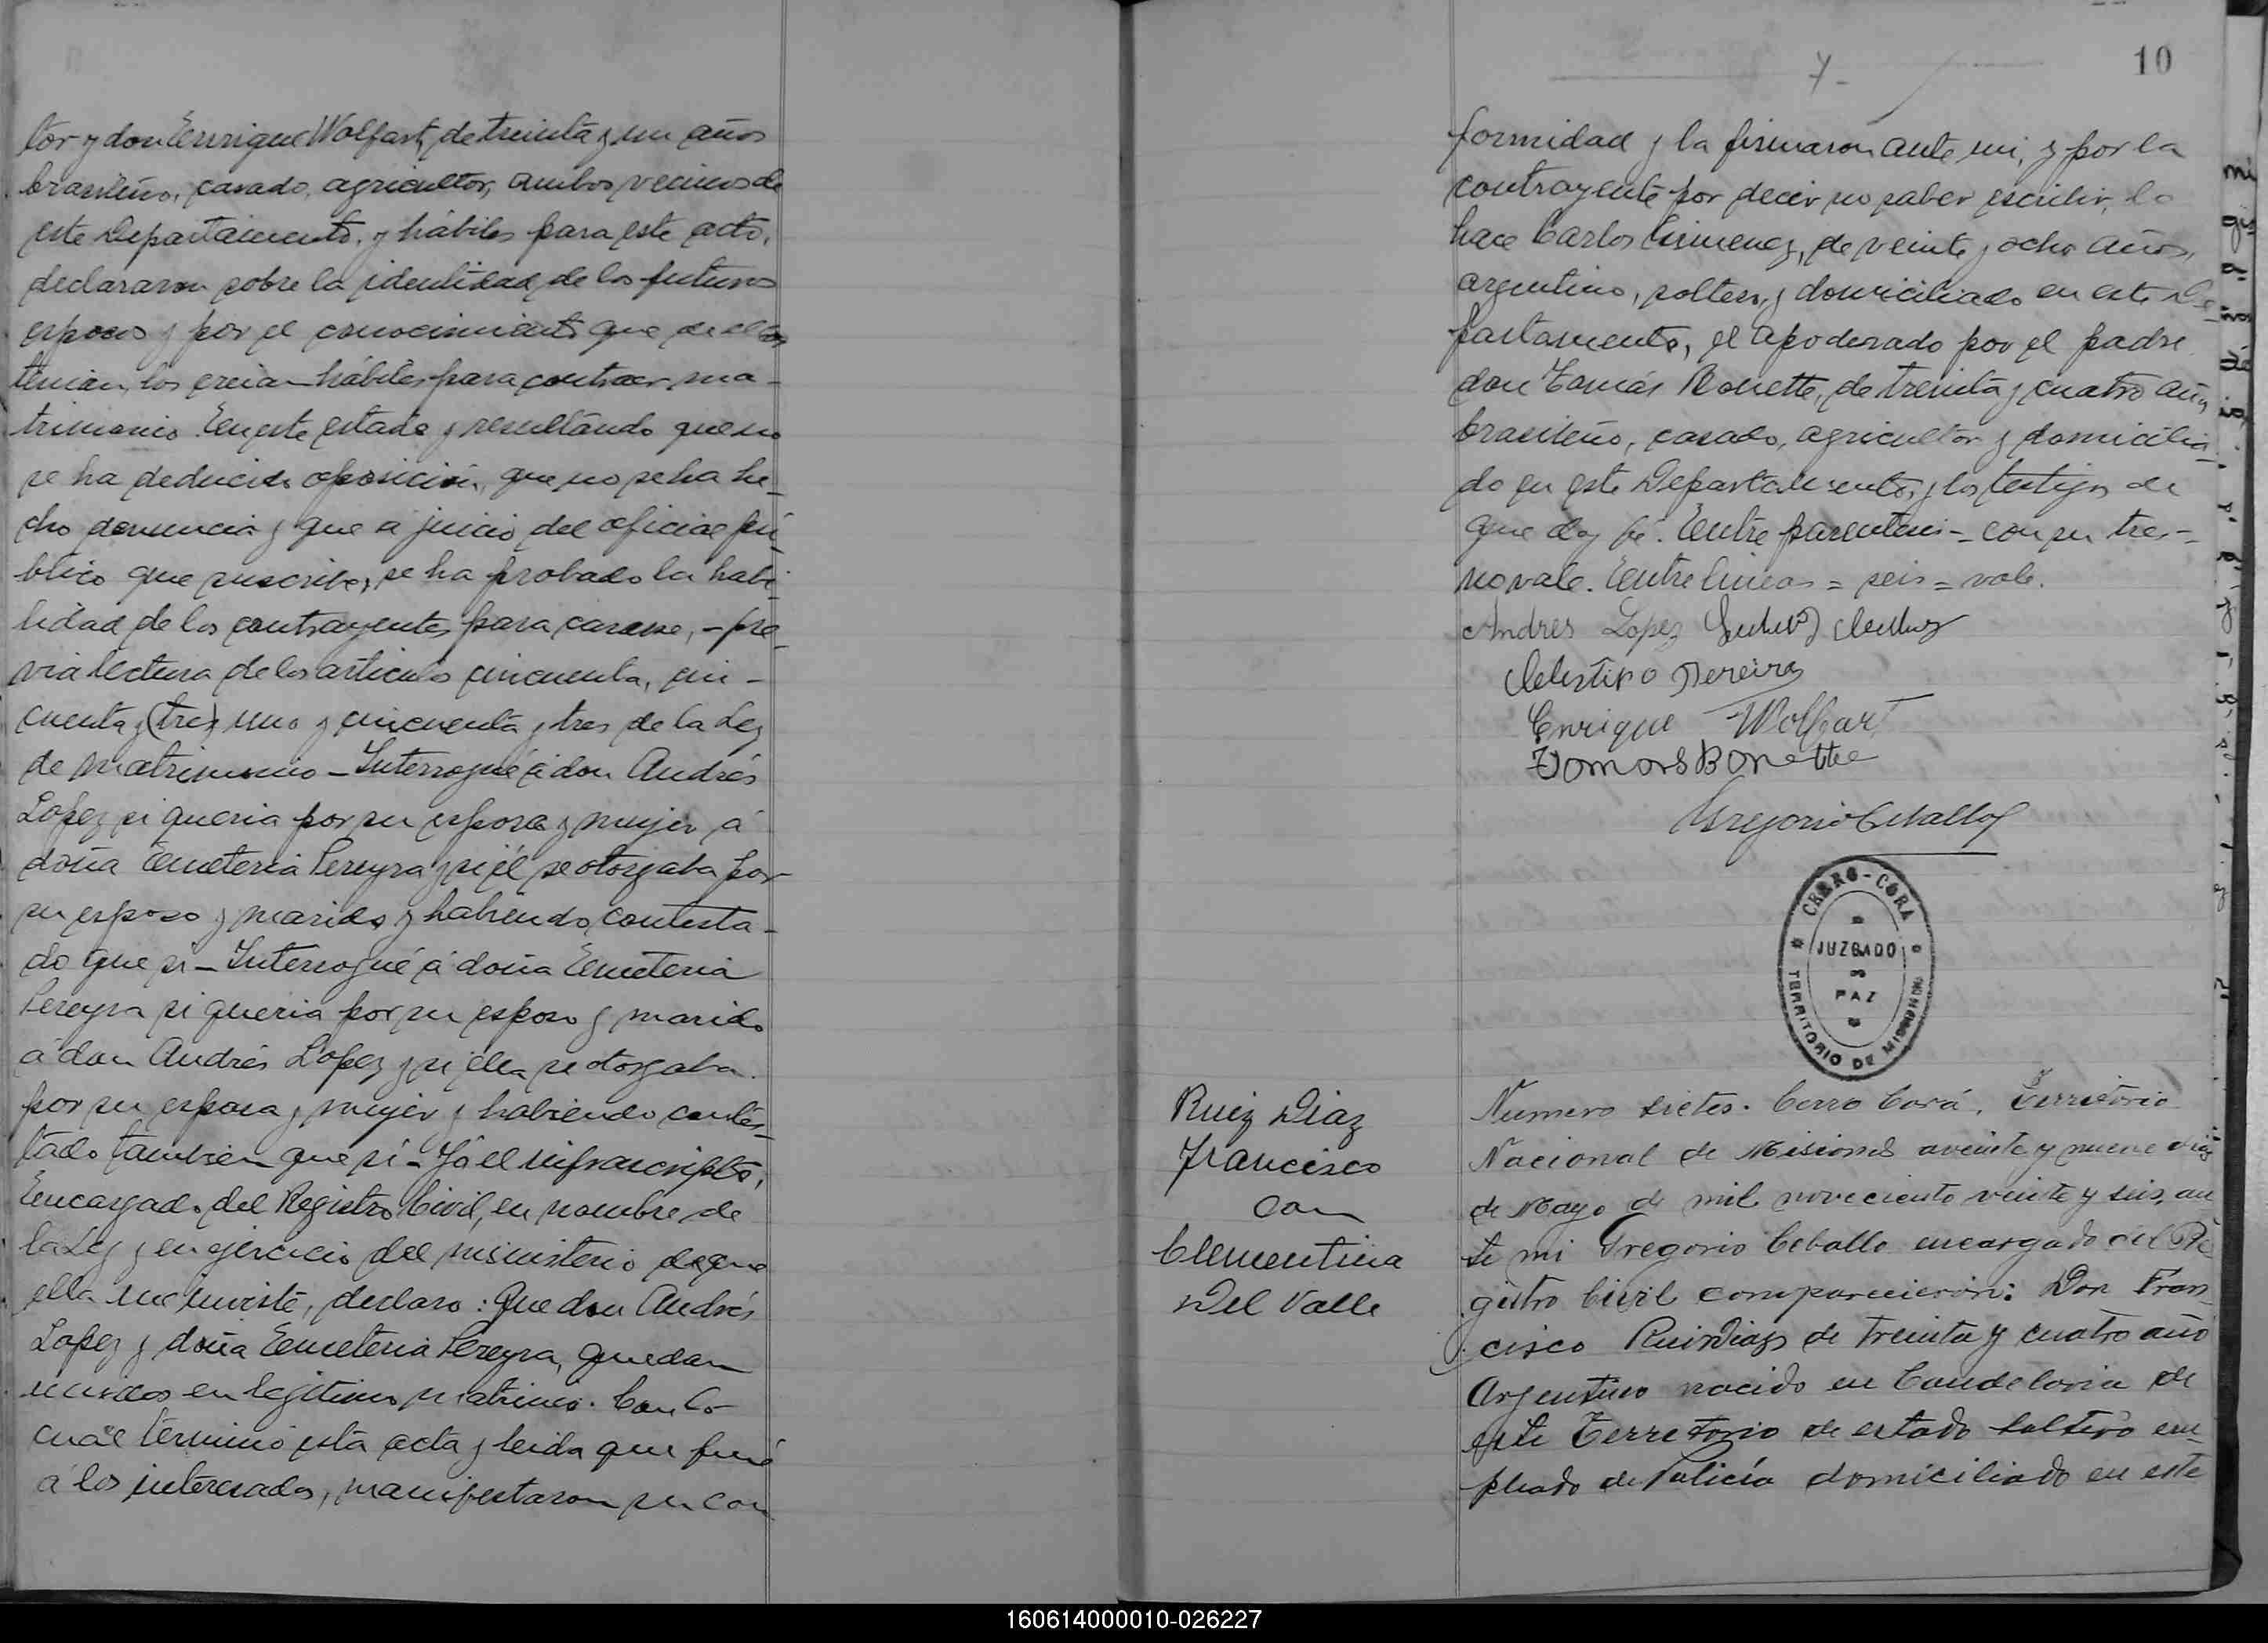 tor y don Enrique Wolfart, de treinta y un años
brasileño, casado, agricultor, ambos vecinos de
este Departamento, y hábiles para este acto,
declararon sobre la identidad de los futuros
esposos y por el conocimiento que de ellos
tenian, los creian hábiles para contraer ma-
trimonio. En este estado y resultando que no
se ha deducido oposición, que no se ha he-
cho denuncia y que a juicio del oficial pú-
blico que suscribe, se ha probado la habi-
lidad de los contrayentes para casarse, - pre-
via lectura de los articulos cincuenta, cin-
cuenta y (tres) uno y cincuenta y tres de la Ley
de Matrimonio - Interrogué á don Andrés
Lopez si queria por su esposa y mujer á
doña Emeteria Pereyra y si él se otorgaba por
su esposo y marido y habiendo contesta-
do que si - Interrogué á doña Emeteria
Pereyra si queria por su esposo y marido
á don Andrés Lopez y si ella se otorgaba
por su esposa y mujer y habiendo contes-
tado tambien que sí - Yó el infrascripto,
Encargado del Registro Civil, en nombre de
la Ley y en ejercicio del ministerio de que
ella me inviste, declaro: Que don Andrés
Lopez y doña Emeteria Pereyra, quedan
unidos en legitimo matrimonio. Con lo
cual terminó esta acta y leida que fué
á los interesados, manifestaron su con
7-
10
formidad y la firmaron ante mi, y por la
contrayente por decir no saber escribir, lo
hace Carlos Gimenez, de veinte y ocho años,
argentino, soltero, y domiciliado en este De-
partamento, el apoderado por el padre
don Tomás Bonette, de treinta y cuatro años
brasileño, casado, agricultor y domicilia-
do en este Departamento, y los testigos de
que doy fé. Entre parentesis - con su tres -
no vale. Entre lineas = seis = vale.
Andres Lopez
Celestino Pereira
Enrique Wolfart
Tomas Bonette
Gregorio Ceballos
CERRO-CORA
JUZGADO
DE
PAZ
TERRITORIO DE MISIONES
Ruiz Diaz
Francisco
con
Clementina
Del Valle
Numero sietes. Cerro Corá, Territorio
Nacional de Misiones a veinte y nueve dias
de Mayo de mil noveciento veinte y seis, an
te mi Gregorio Ceballo encargado del Re
gistro Civil comparecieron: Don Fran
cisco Ruiz Diaz de treinta y cuatro año
Argentino nacido en Candelaria de
este Territorio de estado soltero em
pleado de Policía domiciliado en este
160614000010-026227